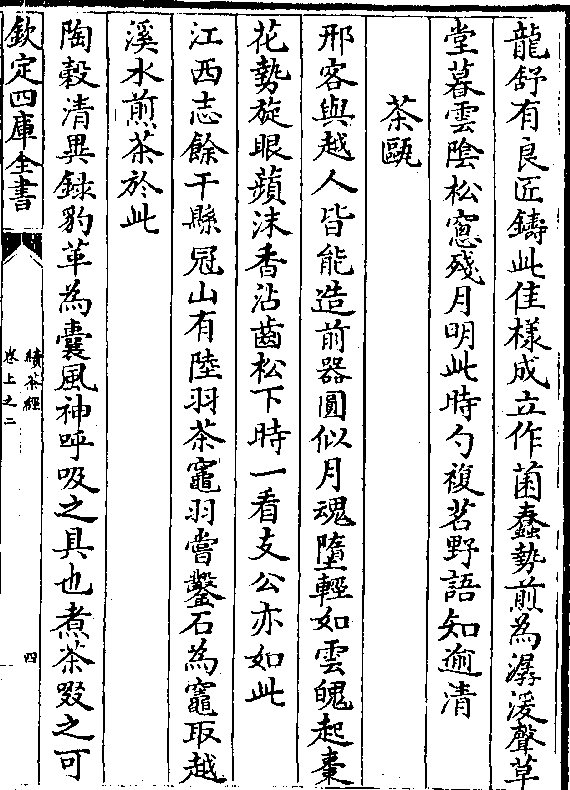 龍舒有良匠鑄此佳樣成立作菌蠢勢煎為潺湲聲草
堂暮雲陰松窓殘月明此時勺複茗野語知逾清
茶甌
邢客與越人皆能造前器圓似月魂墮輕如雲魄起棗
花勢旋眼蘋沫香沾齒松下時一看支公亦如此
江西志餘干縣冠山有陸羽茶竈羽嘗鑿石為竈取越
溪水煎茶於此
陶穀清異録豹革為囊風神呼吸之具也煮茶啜之可
欽定四庫全書
續茶經
卷上之二
四